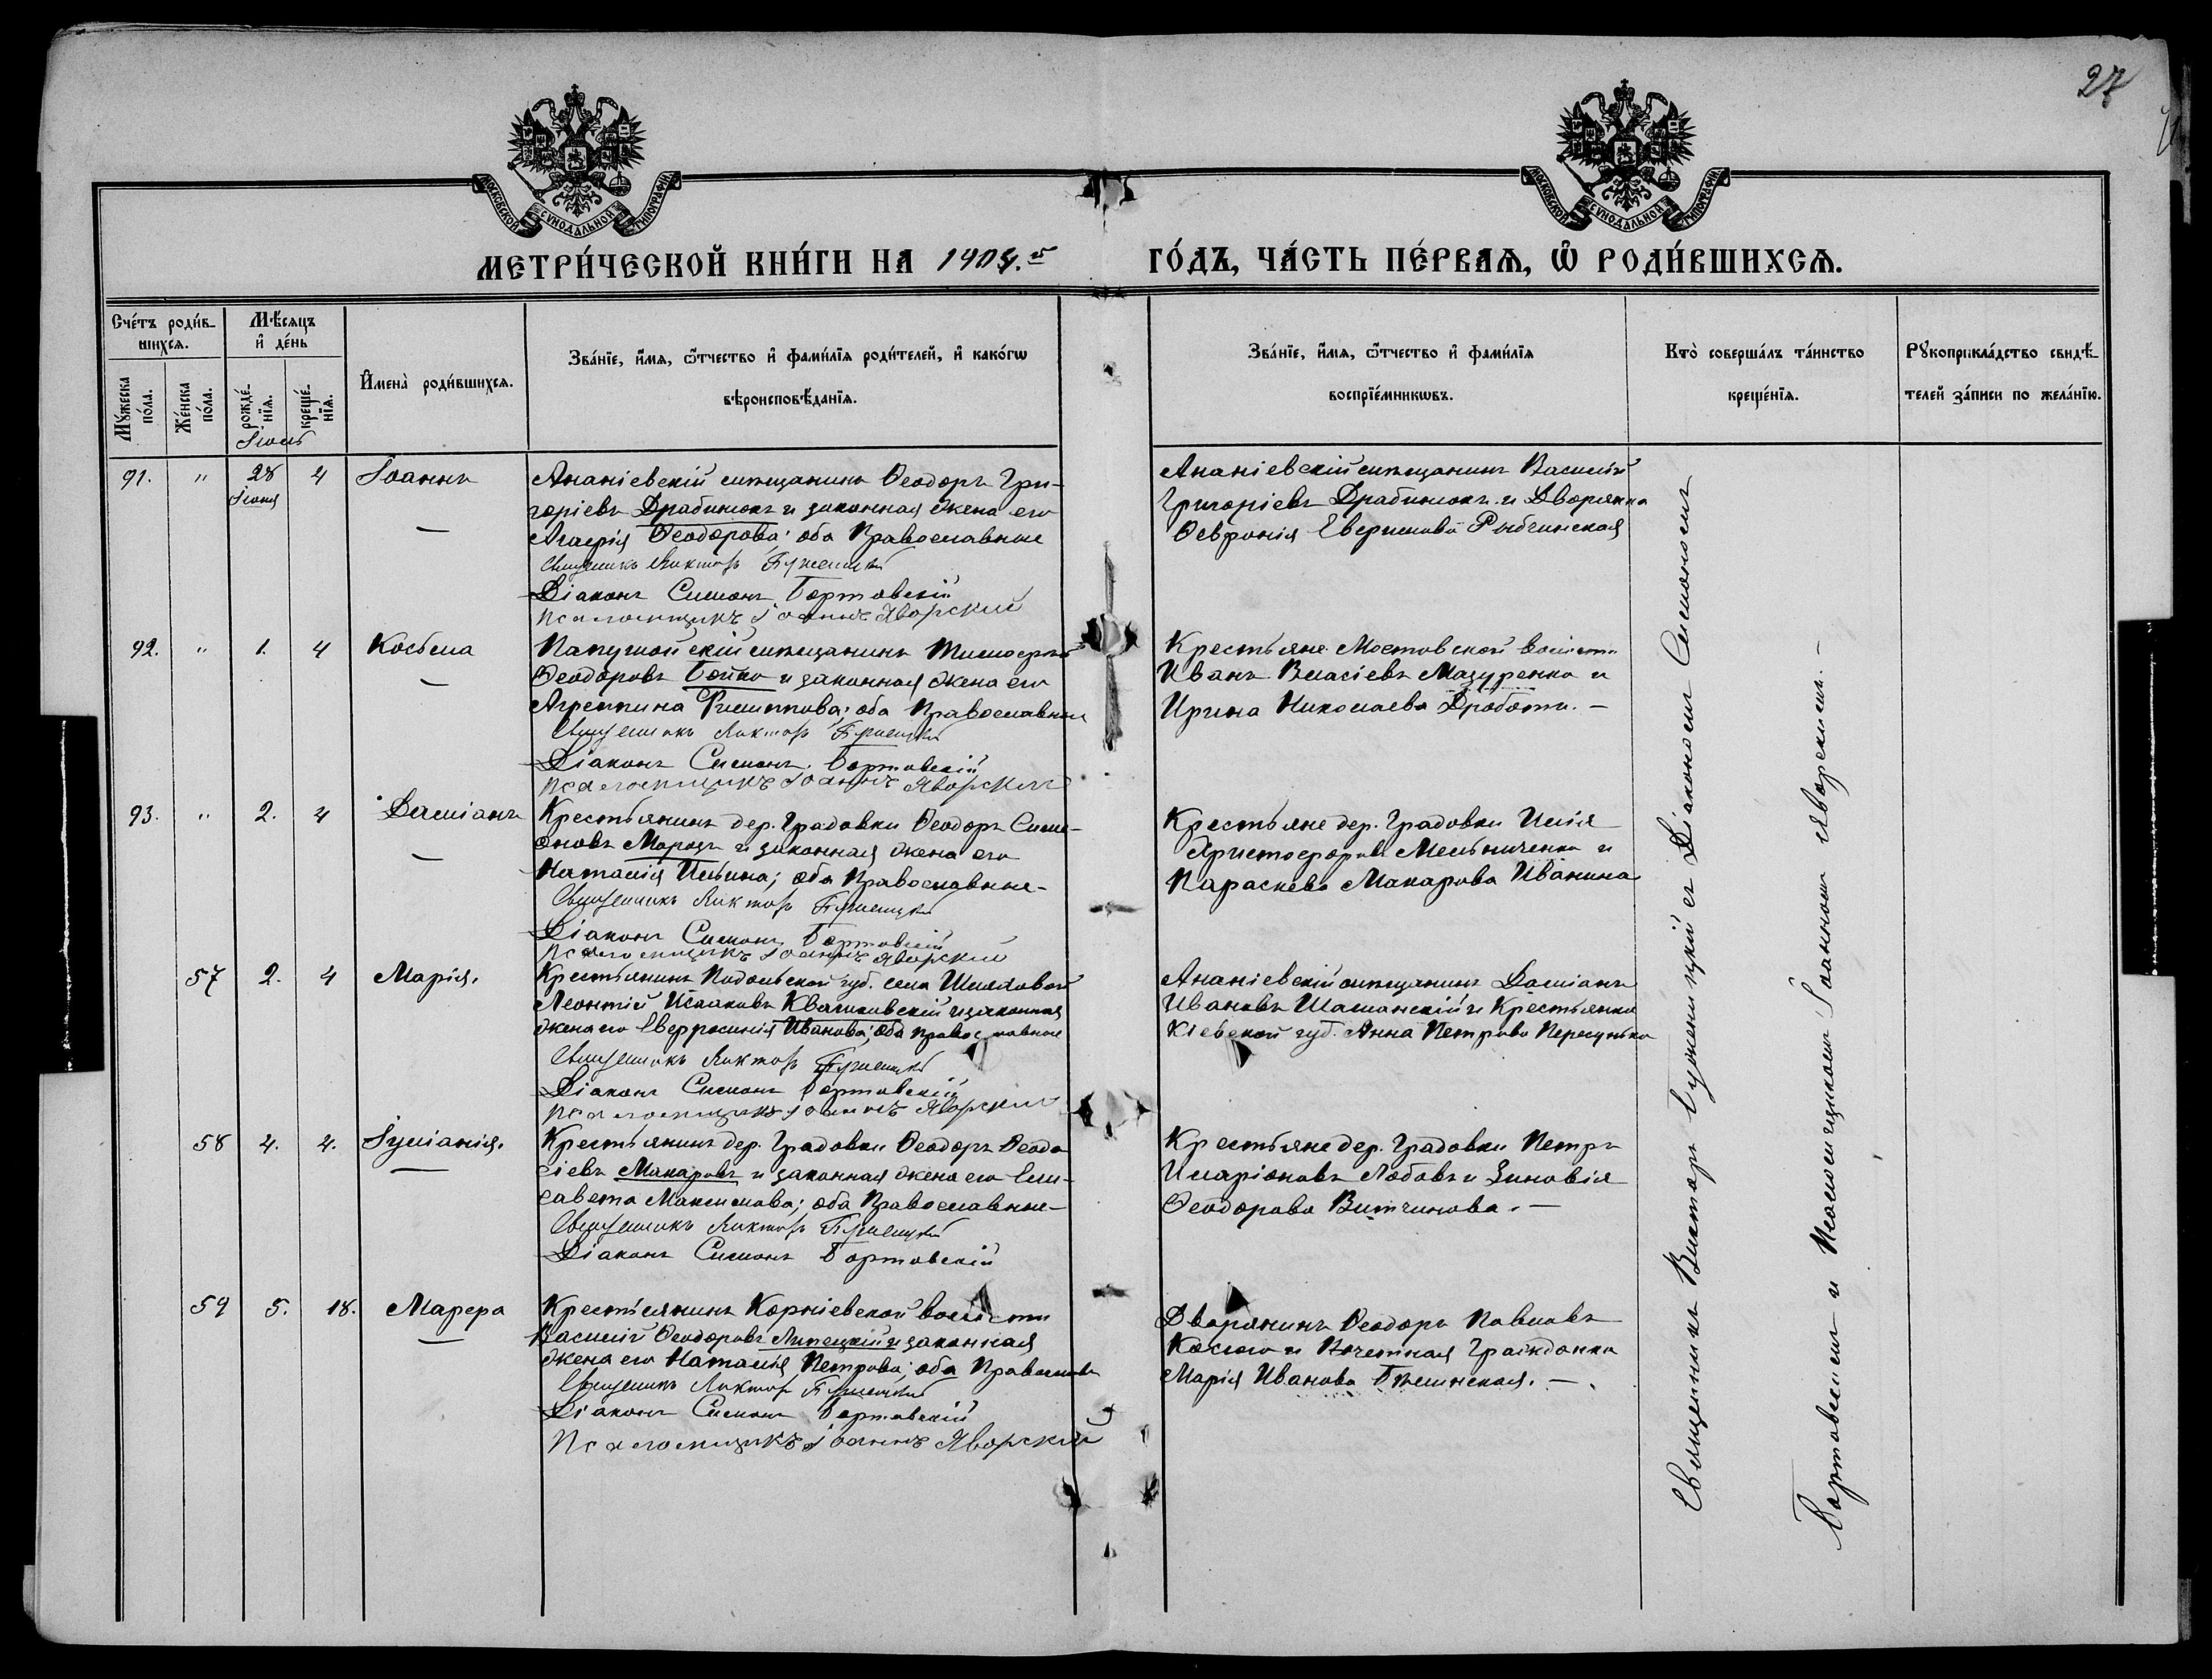 27
МОСКОВСКОЙ СѴНОДАЛЬНОЙ ТИПОГРАФІИ
МОСКОВСКОЙ СѴНОДАЛЬНОЙ ТИПОГРАФІИ
МЕТРИ́ЧЕСКОЙ КНИ́ГИ НА 1905. ГО́ДЪ, ЧА́СТЬ ПЕ́РВАѦ, Ѽ РОДИ́ВШИХСѦ.
Сче́тъ роди́в-
шихсѧ.
Мꙋ́жеска по́ла.
Же́нска по́ла.
Мѣ́сѧцъ
и҆ де́нь
рожде́-
нїѧ.
креще́-
нїѧ.
И҆мена̀ роди́вшихсѧ.
Зва́нїе, и҆́мѧ, ѻ҆́тчество и҆ фами́лїѧ роди́телей, и҆ како́гѡ
вѣроисповѣ́данїѧ.
Зва́нїе, и҆́мѧ, ѻ҆́тчество и҆ фами́лїѧ
воспрїе́мникѡвъ.
Кто̀ соверша́лъ та́инство
креще́нїѧ.
Рꙋкоприкла́дство свидѣ́-
телей за́писи по жела́нїю.
Іюль
91. " 28 4 Іоаннъ
Іюня
Ананіевскій мѣщанинъ Ѳеодоръ Гри-
горіевъ Драбинюкъ и законная жена его
Агафія Ѳеодорова; оба Православные
Священникъ Виктор
Діаконъ Симонъ Бортовскій
Псаломщикъ Іоаннъ Яворский
Ананіевскій мѣщанинъ Василій
Григоріевъ Драбинюкъ и Дворянка
Ѳевронія Рыбчинская
92. " 1. 4 Косьма
мѣщанинъ Тимоѳей
Ѳеодоровъ Бойко и законная жена его
Агреппина Филиппова; оба Православные
Священникъ Виктор
Діаконъ Симонъ Бортовскій
Псаломщикъ Іоаннъ Яворский
Крестьяне Мостовской волости
Иванъ Власіевъ Мазуренко и
Ирина Николаева Дробота. —
93. " 2. 4 Даміанъ
Крестьянинъ дер. Градовки Ѳеодоръ Симе-
оновъ Морозъ и законная жена его
Наталія Ильина; оба Православные-
Священникъ Виктор
Діаконъ Симонъ Бортовскій
Псаломщикъ Іоаннъ Яворский
Крестьяне дер. Градовки Илія
Христофоровъ Мельниченко и
Параскева Макарова Иванина
57 2. 4 Марія.
Крестьянинъ Подольской губ. села
Леонтій Исааковъ и законная
жена его Евфросинія Иванова; оба православные
Священникъ Виктор
Діаконъ Симонъ Бортовскій
Псаломщикъ Іоаннъ Яворский
Ананіевскій мѣщанинъ Даміанъ
Ивановъ Шаманскій и Крестьянка
Кіевской губ. Анна Петрова
58 4. 4. Іуліанія.
Крестьянинъ дер. Градовки Ѳеодоръ Ѳеодо
сіевъ Макаровъ и законная жена его Ели-
савета Максимова; оба Православные-
Священникъ Виктор
Діаконъ Симонъ Бортовскій
Крестьяне дер. Градовки Петръ
Иларіоновъ Лобовъ и Зиновія
Ѳеодорова Витчинова. —
59 5. 18. Марѳа
Крестьянинъ Корніевской волости
Василій Ѳеодоровъ Липецкій и законная
жена его Наталія Петрова; оба Православн
Священникъ Виктор
Діаконъ Симонъ Бортовскій
Псаломщикъ Іоаннъ Яворский
Дворянинъ Ѳеодоръ Павловъ
и Почетная Гражданка
Марія Иванова Бѣлинская. —
Священникъ Викторъ съ Діакономъ Симономъ
Бортовскимъ и Псаломщикомъ Іоанномъ Яворскимъ. —